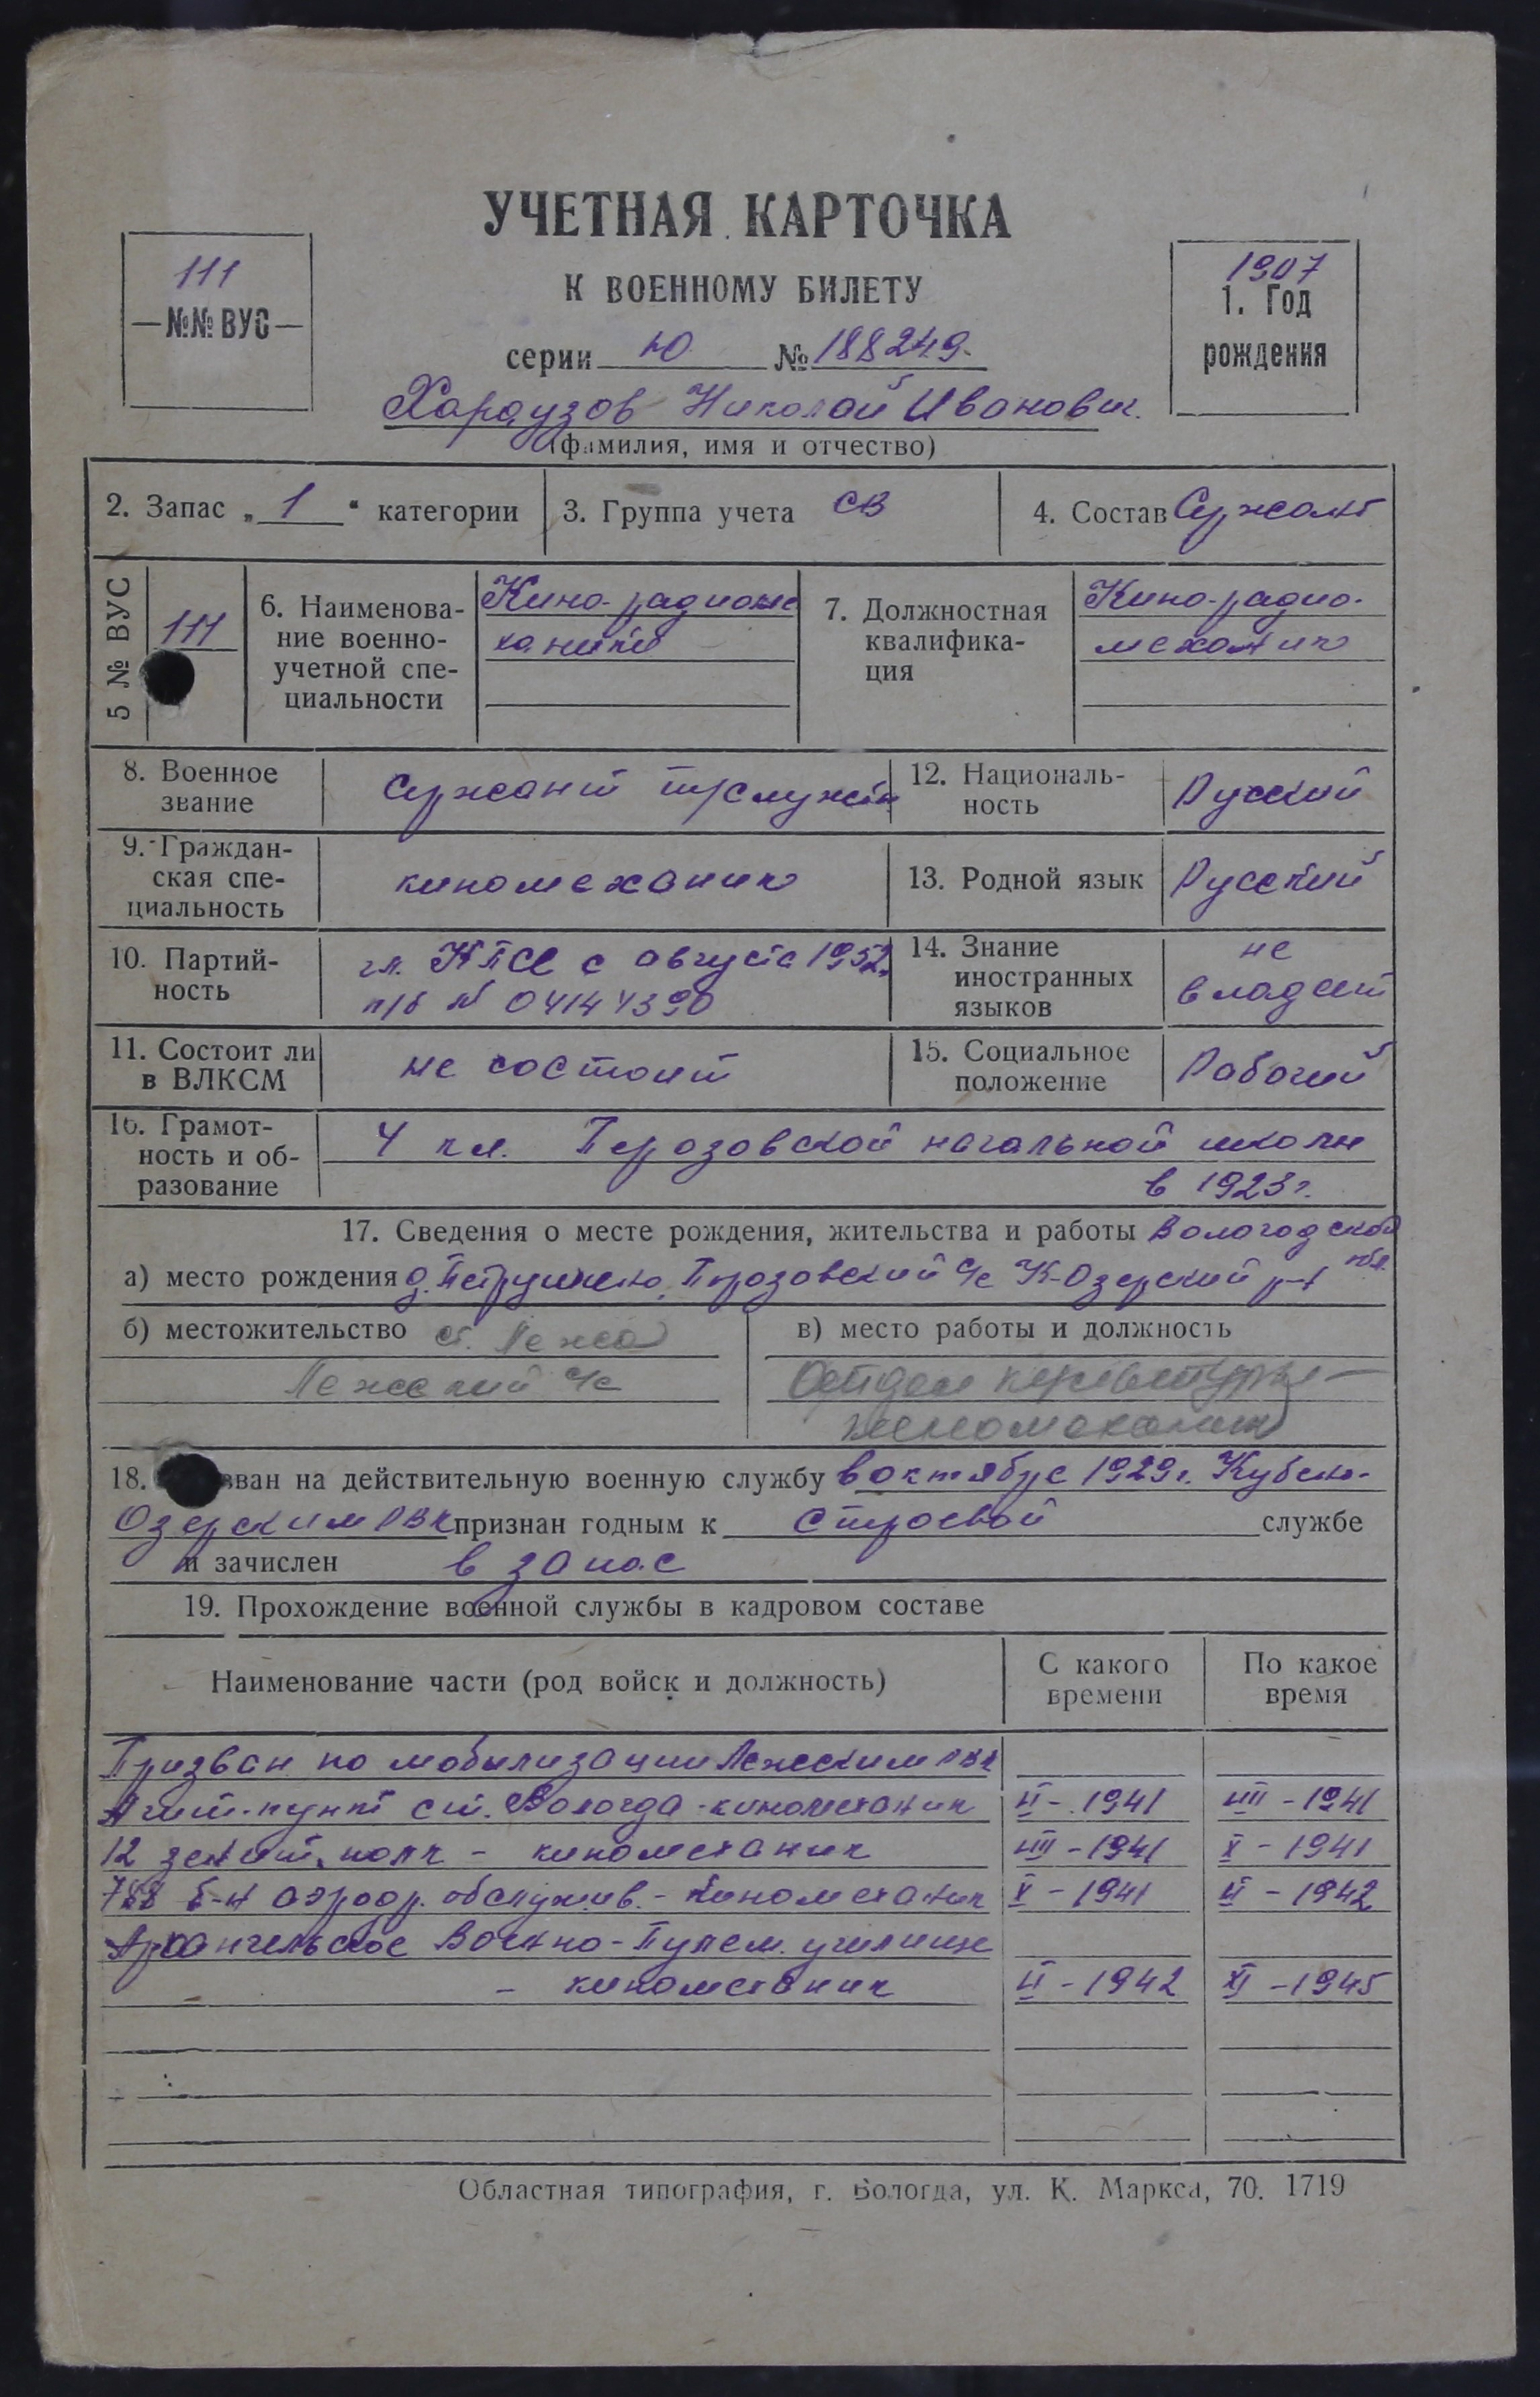 УЧЕТНАЯ КАРТОЧКА
К ВОЕННОМУ БИЛЕТУ
111
—№№ ВУС—
1907
1. Год
рождения
серии Ю № 188249.
Хараузов Николай Иванович.
(фамилия, имя и отчество)
2. Запас „1“ категории
3. Группа учета СВ
4. Состав Сержант
5 № ВУС
111
6. Наименова-
ние военно-
учетной спе-
циальности
Кино-радиоме
ханики
7. Должностная
квалифика-
ция
Кино-радио-
механик
8. Военное
звание
Сержант т/службы
12. Националь-
ность
Русский
9. Граждан-
ская спе-
циальность
киномеханик
13. Родной язык
Русский
10. Партий-
ность
чл. КПСС с августа 1952
п/б № 04144390
14. Знание
иностранных
языков
не
владеет
11. Состоит ли
в ВЛКСМ
не состоит
15. Социальное
положение
Рабочий
16. Грамот-
ность и об-
разование
4 кл. Перозовской начальной школы
в 1923 г.
17. Сведения о месте рождения, жительства и работы Вологодской
обл.
а) место рождения д. Петрушино, К-Озерский р-н
б) местожительство ст. Лежа
Лежский с/с
в) место работы и должность
Отдел культуры —
киномеханик
18. зван на действительную военную службу в октябре 1929 г. Кубено-
Озерским РВК признан годным к строевой службе
и зачислен в запас
19. Прохождение военной службы в кадровом составе
Наименование части (род войск и должность)
С какого
времени
По какое
время
Призван по мобилизации Лежским РВК
Агит-пункт ст. Вологда - киномеханик VI - 1941 VIII - 1941
12 зенит. полк - киномеханик VIII - 1941 X - 1941
788 б-н аэродр. обслужив. - киномеханик X - 1941 II - 1942
Архангельское Военно-Пулем. училище
- киномеханик II - 1942 XI - 1945
Областная типография, г. Вологда, ул. К. Маркса, 70. 1719